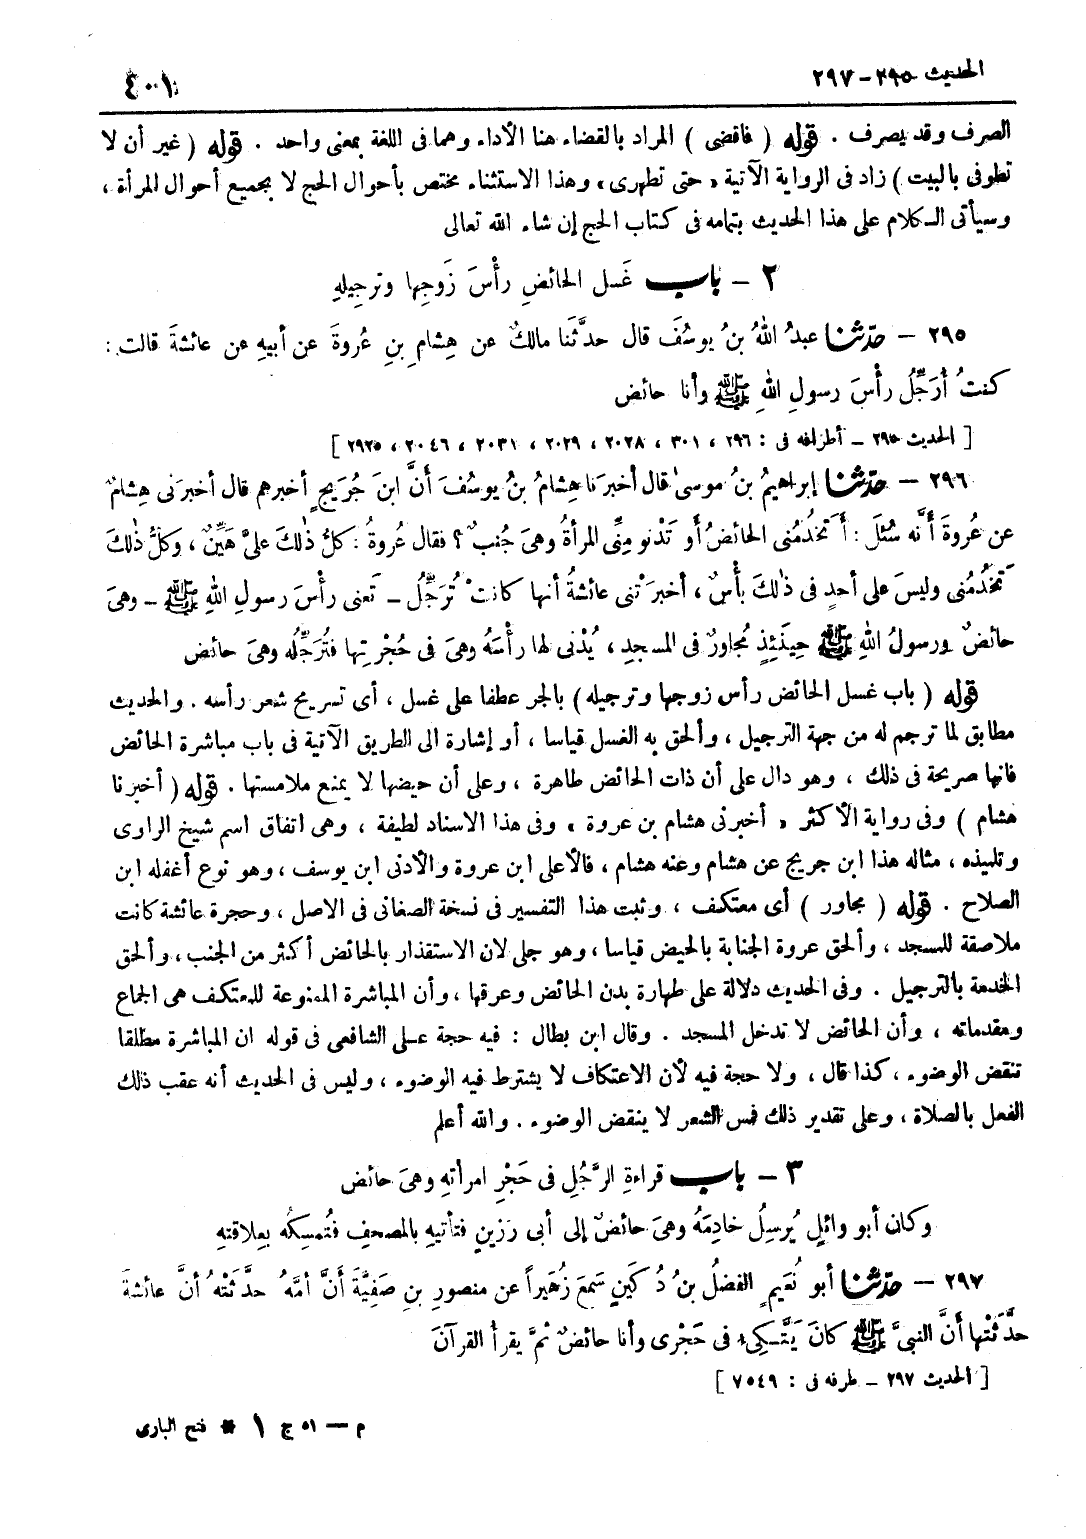 الحديث ٢٩٥ – ٢٩٧
٤٠١
الصرف وقد يصرف . قوله ( فاقضى ) المراد بالقضاء هنا الأداء وهما فى اللغة بمعنى واحد . قوله ( غير أن لا
تطوفى بالبيت ) زاد فى الرواية الآتية « حتى تطهرى » وهذا الاستثناء مختص بأحوال الحج لا بجميع أحوال المرأة ،
وسيأتى الكلام على هذا الحديث بتمامه فى كتاب الحج إن شاء الله تعالى
٢ – باب غَسل الحائضِ رأْسَ زَوجِها وترجيلِهِ
٢٩٥ – حدّثنا عبدُ اللهِ بنُ يوسُفَ قال حدَّثَنا مالكٌ عن هِشامِ بنِ عُروةَ عن أبيهِ عن عائشةَ قالت :
كنتُ أُرَجِّلُ رأْسَ رسولِ اللهِ ﷺ وأنا حائض
[ الحديث ٢٩٥ – أطرافه فى : ٢٩٦ ، ٣٠١ ، ٢٠٢٨ ، ٢٠٢٩ ، ٢٠٣١ ، ٢٠٤٦ ، ٢٩٢٥ ]
٢٩٦ – حدّثنا إبراهيمُ بنُ موسىٰ قال أخبرَنا هِشامُ بنُ يوسُفَ أنَّ ابنَ جُرَيجٍ أخبرهم قال أخبرَنى هِشامٌ
عن عُروةَ أنَّه سُئلَ : أَتَخدُمُنى الحائضُ أو تَدْنو مِنِّى المرأةُ وهىَ جُنبٌ ؟ فقال عُروةُ : كلُّ ذٰلكَ علىَّ هَيِّنٌ ، وكلُّ ذٰلكَ
تَخدُمُنى وليسَ على أحدٍ فى ذٰلكَ بأْسٌ ، أخبرَتْنى عائشةُ أنها كانتْ تُرَجِّلُ – تَعنى رأْسَ رسولِ اللهِ ﷺ – وهىَ
حائضٌ ورسولُ اللهِ ﷺ حِينَئِذٍ مُجاورٌ فى المسجدِ ، يُدْنى لها رأْسَهُ وهىَ فى حُجْرتِها فتُرَجِّلُه وهىَ حائض
قوله ( باب غسل الحائض رأس زوجها وترجيله ) بالجر عطفا على غسل ، أى تسريح شعر رأسه . والحديث
مطابق لما ترجم له من جهة الترجيل ، وألحق به الغسل قياسا ، أو إشارة الى الطريق الآتية فى باب مباشرة الحائض
فانها صريحة فى ذلك ، وهو دال على أن ذات الحائض طاهرة ، وعلى أن حيضها لا يمنع ملامستها . قوله ( أخبرنا
هشام ) وفى رواية الأكثر « أخبرنى هشام بن عروة » وفى هذا الاسناد لطيفة ، وهى اتفاق اسم شيخ الراوى
وتلميذه ، مثاله هذا ابن جريج عن هشام وعنه هشام ، فالأعلى ابن عروة والأدنى ابن يوسف ، وهو نوع أغفله ابن
الصلاح . قوله ( مجاور ) أى معتكف ، وثبت هذا التفسير فى نسخة الصغانى فى الاصل ، وحجرة عائشة كانت
ملاصقة للمسجد ، وألحق عروة الجنابة بالحيض قياسا ، وهو جلى لان الاستقذار بالحائض أكثر من الجنب ، وألحق
الخدمة بالترجيل . وفى الحديث دلالة على طهارة بدن الحائض وعرقها ، وأن المباشرة الممنوعة للمعتكف هى الجماع
ومقدماته ، وأن الحائض لا تدخل المسجد . وقال ابن بطال : فيه حجة على الشافعى فى قوله ان المباشرة مطلقا
تنقض الوضوء ، كذا قال ، ولا حجة فيه لأن الاعتكاف لا يشترط فيه الوضوء ، وليس فى الحديث أنه عقب ذلك
الفعل بالصلاة ، وعلى تقدير ذلك فمس الشعر لا ينقض الوضوء . والله أعلم
٣ – باب قراءةِ الرَّجُلِ فى حَجْرِ امرأتِهِ وهىَ حائض
وكان أبو وائلٍ يُرسِلُ خادِمَهُ وهىَ حائضٌ إلى أبى رَزينٍ فتأتيهِ بالمصحفِ فتُمسِكُه بعِلاقتهِ
٢٩٧ – حدّثنا أبو نُعَيمٍ الفضلُ بنُ دُكَينٍ سَمعَ زُهَيراً عن منصورِ بنِ صَفيَّةَ أنَّ أمَّهُ حدَّثَتْهُ أنَّ عائشةَ
حدَّثَتْها أنَّ النبىَّ ﷺ كانَ يَتَّكىءُ فى حَجْرى وأنا حائضٌ ثمَّ يقرأُ القرآنَ
[ الحديث ٢٩٧ – طرفه فى : ٧٥٤٩ ]
م – ٥١ ج ١ * فتح البارى